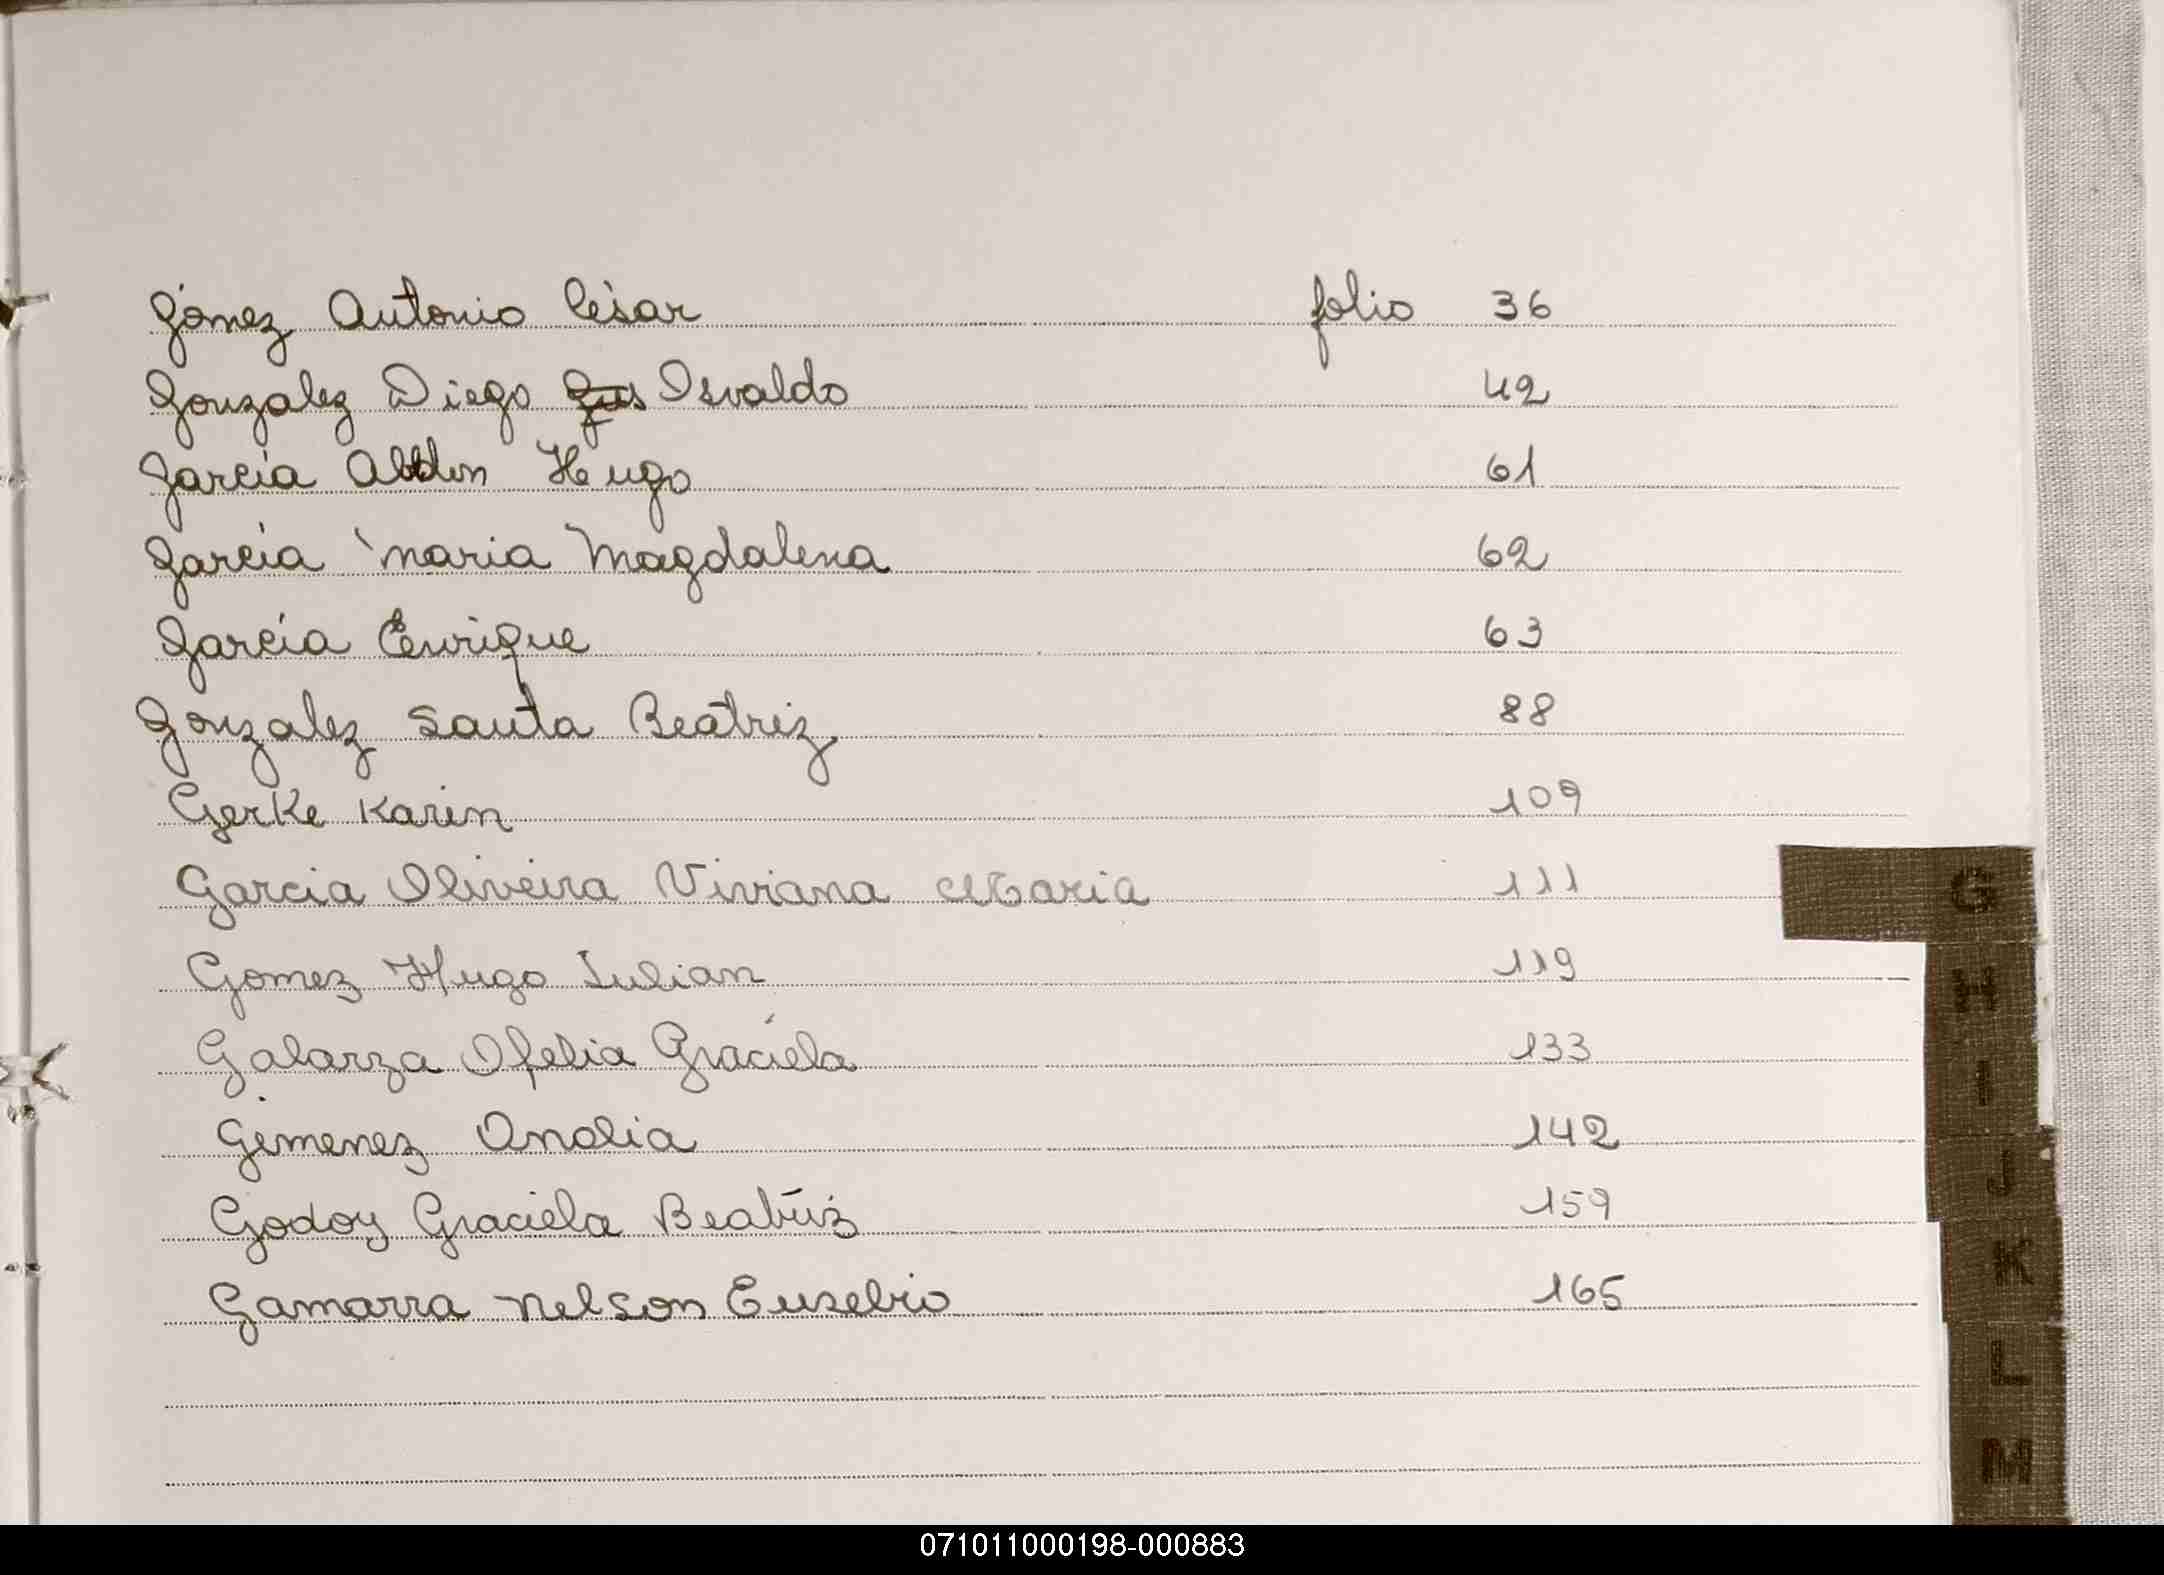 Gómez Antonio César folio 36
Gonzalez Diego Osvaldo 42
García Abdon Hugo 61
García Maria Magdalena 62
García Enrique 63
Gonzalez Santa Beatriz 88
Gerke Karin 109
Garcia Oliveira Viviana Maria 111
Gomez Hugo Julian 119
Galarza Ofelia Graciela 133
Gimenez Analia 142
Godoy Graciela Beatriz 159
Gamarra Nelson Eusebio 165
G
H
I
J
K
L
M
071011000198-000883